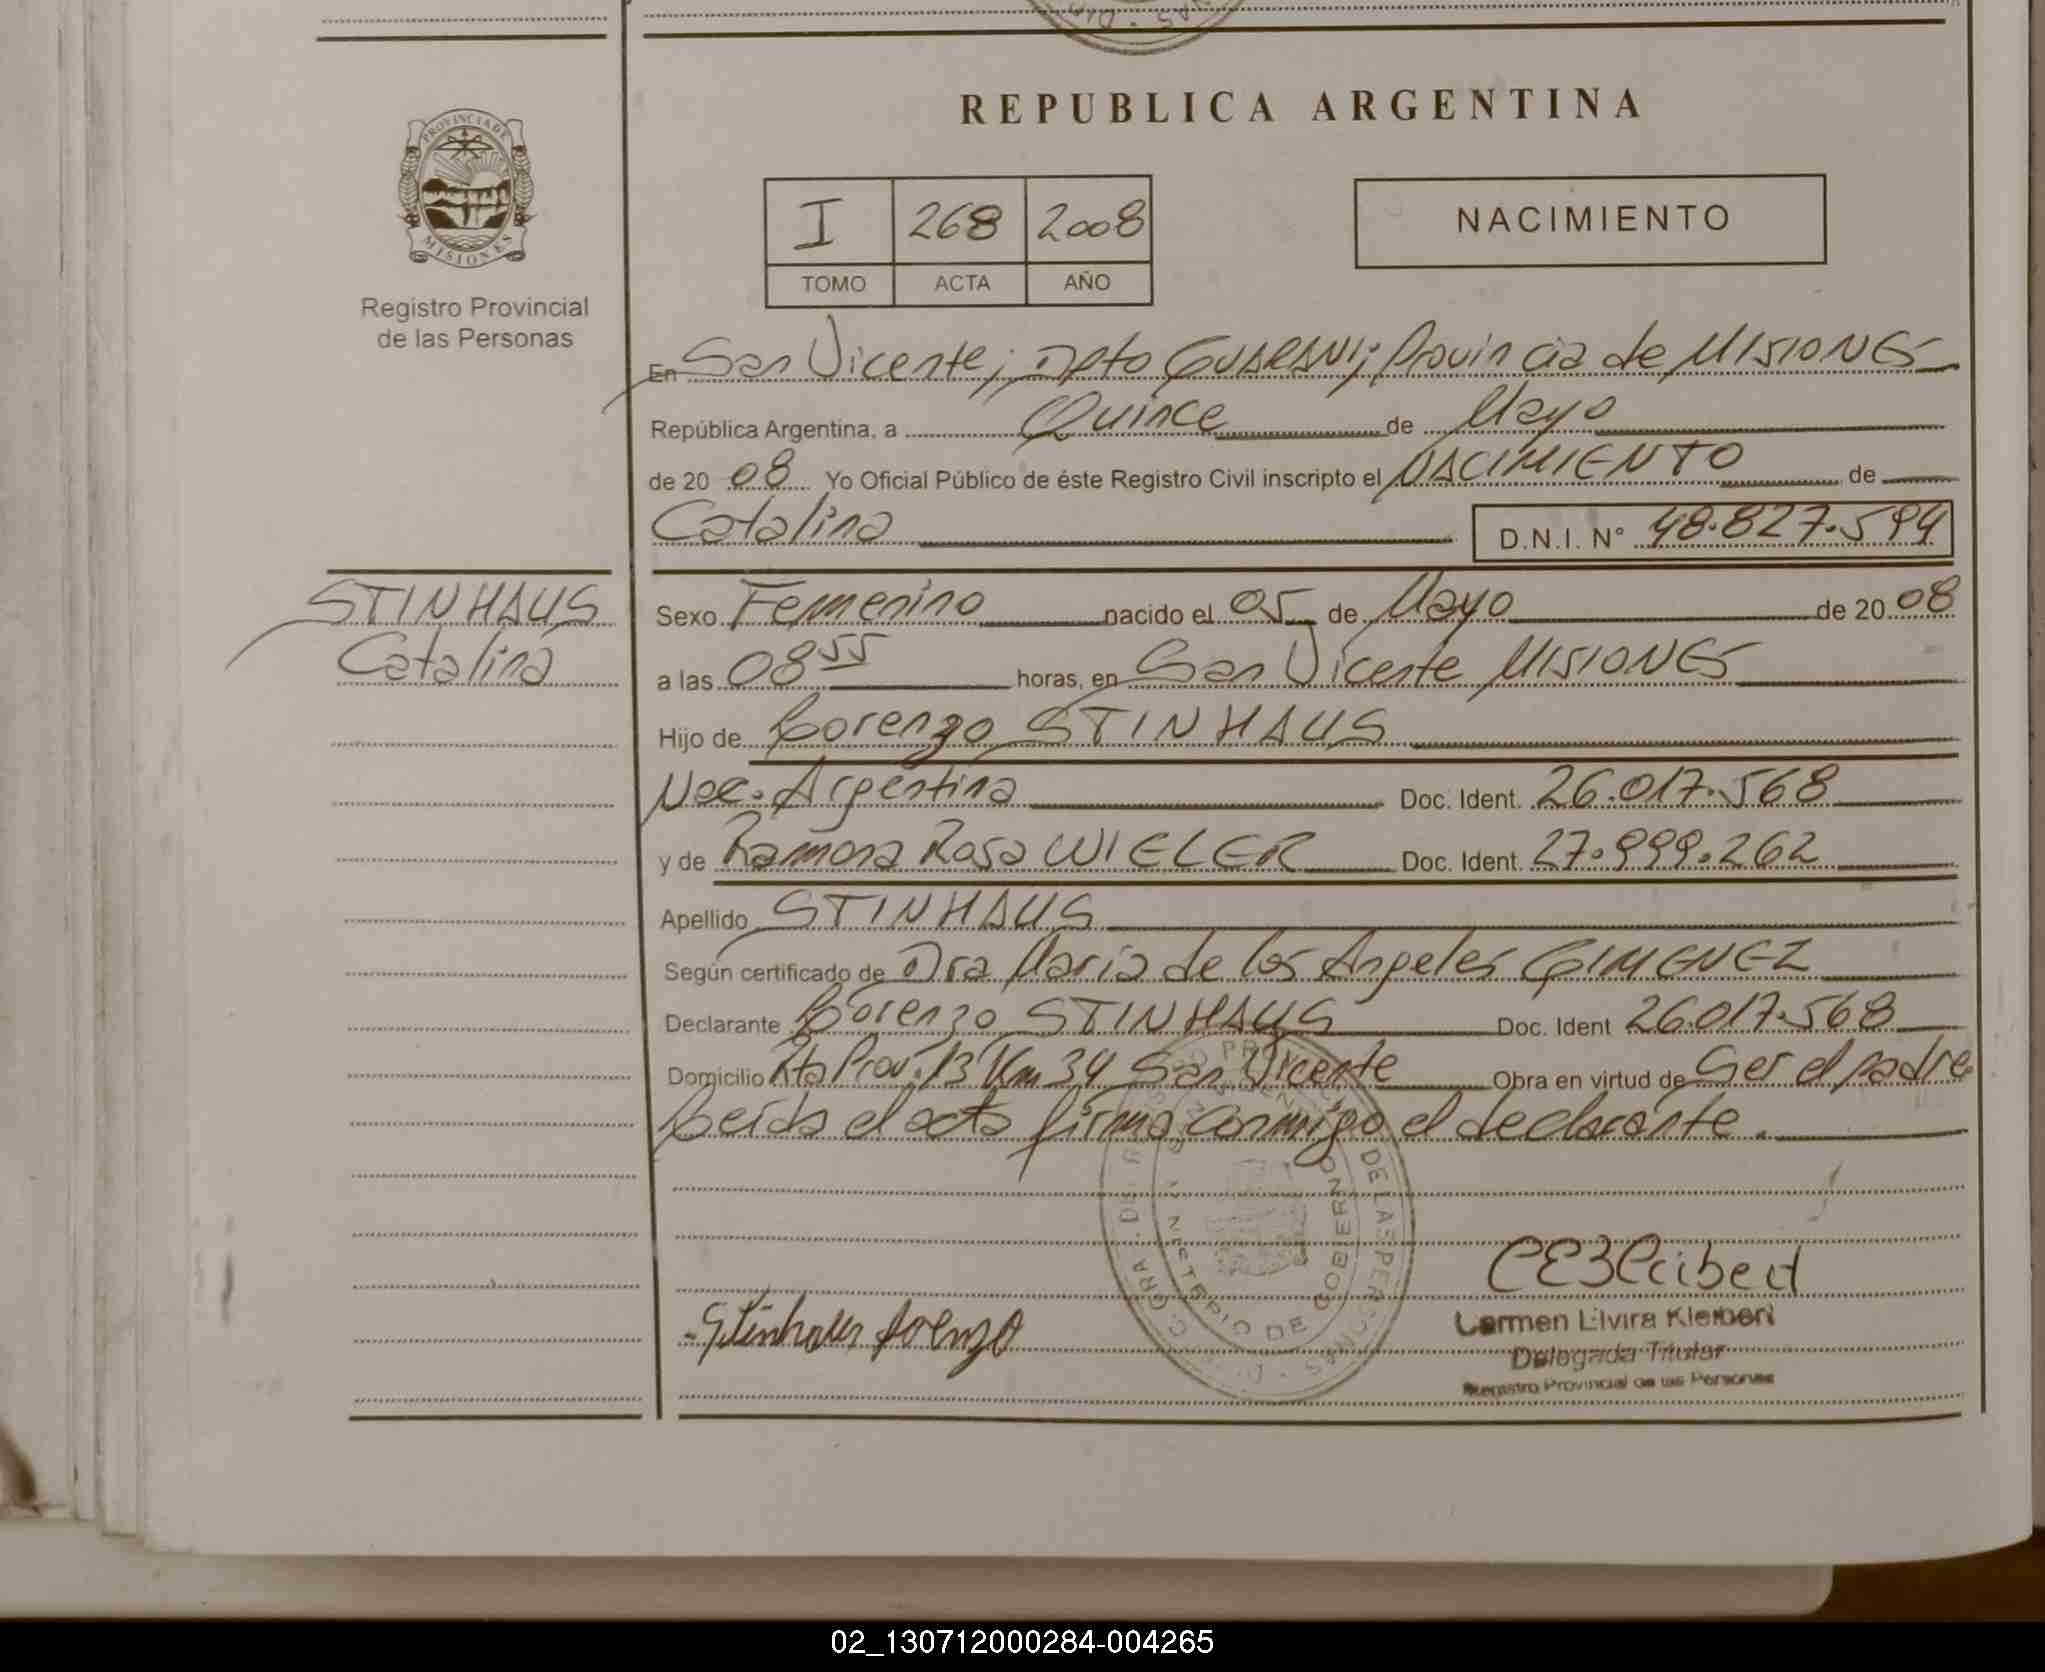 REPUBLICA ARGENTINA
PROVINCIA DE
MISIONES
Registro Provincial
de las Personas
I 268 2008
TOMO ACTA AÑO
NACIMIENTO
En San Vicente; Dpto GUARANI; Provincia de MISIONES
República Argentina, a Quince de Mayo
de 20 08 Yo Oficial Público de éste Registro Civil inscripto el NACIMIENTO de
Catalina D.N.I. N° 48.827.594
STINHAUS
Catalina
Sexo Femenino nacido el 05 de Mayo de 20 08
a las 08 55 horas, en San Vicente MISIONES
Hijo de Lorenzo STINHAUS
Nac. Argentina Doc. Ident. 26.017.568
y de Ramona Rosa WIELER Doc. Ident. 27.999.262
Apellido STINHAUS
Según certificado de Dra Maria de los Angeles GIMENEZ
Declarante Lorenzo STINHAUS Doc. Ident 26.017.568
Domicilio Rta Prov. 13 Km 34 San Vicente Obra en virtud de Ser el padre
Leida el acta firma conmigo el declarante.
MINISTERIO DE GOBIERNO
DE LAS PERSONAS
Stinhaus Lorenzo
Carmen Elvira Kleibert
Delegada Titular
Registro Provincial de las Personas
02_130712000284-004265